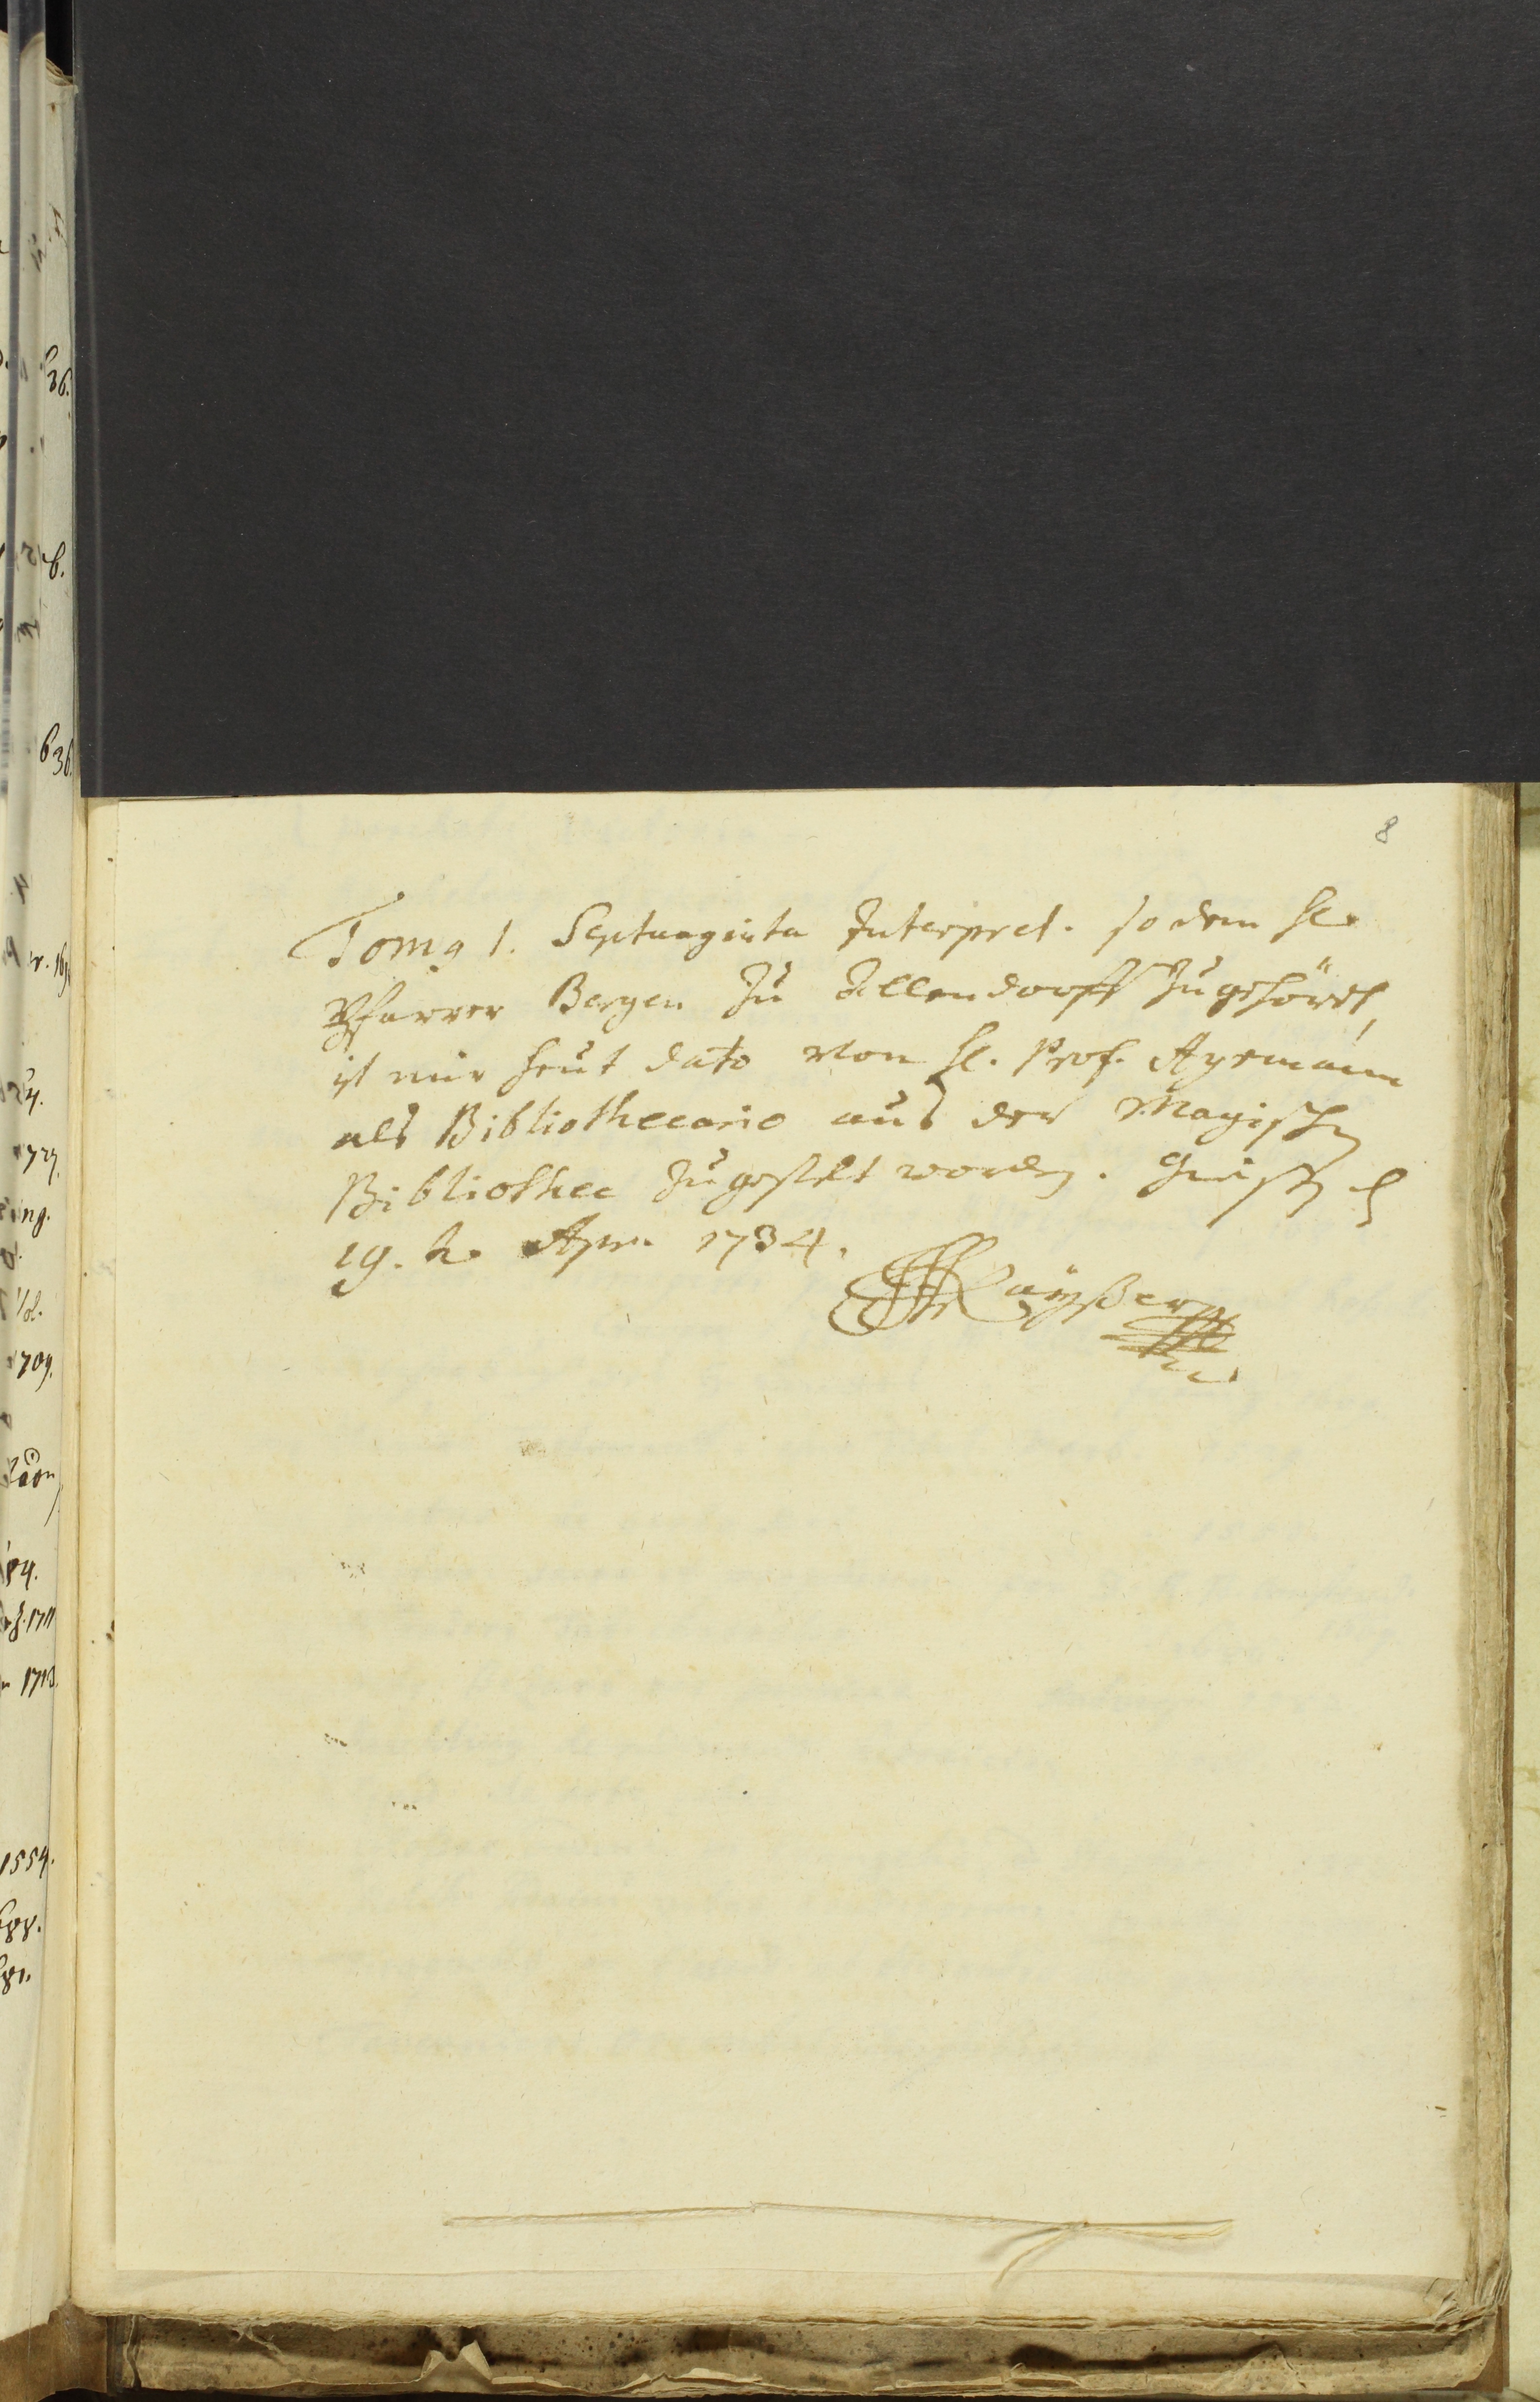 8
Tomq 1. Septuaginta Interpret. so dem H.
Pfarrer Bergen zu Allendorff zugehört,
ist mir heut dato von H. Prof. Ayrmann
als Bibliothecario aus der Mayischen
Bibliothec zugestelt worden. Giessen d
19. Apr. 1734.
Kayßer
636.
1554.